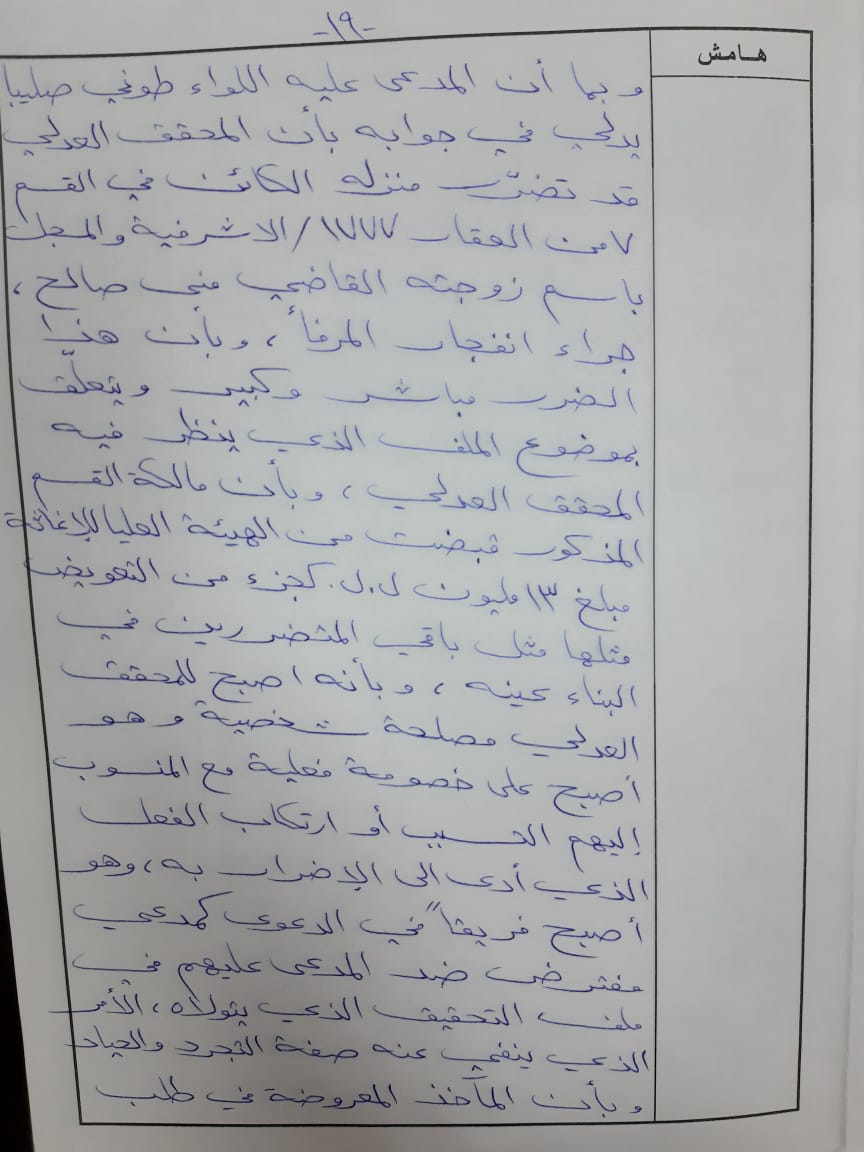 -١٩-
هامش
وبما أن المدعى عليه اللواء طوني صليبا
يدلي في جوابه بأن المحقق العدلي
قد تضرّر منزله الكائن في القسم
٧ من العقار ١٧٧٧/الاشرفية والمسجل
باسم زوجته القاضي منى صالح،
جراء انفجار المرفأ، وبأن هذا
الضرر مباشر وكبير ويتعلّق
بموضوع الملف الذي ينظر فيه
المحقق العدلي، وبأن مالكة القسم
المذكور قبضت من الهيئة العليا للإغاثة
مبلغ ١٣ مليون ل.ل. كجزء من التعويض
مثلها مثل باقي المتضررين في
البناء عينه، وبأنه اصبح للمحقق
العدلي مصلحة شخصية وهو
أصبح على خصومة فعلية مع المنسوب
إليهم التسبب أو ارتكاب الفعل
الذي أدى الى الإضرار به، وهو
أصبح فريقاً في الدعوى كمدعي
مفترض ضد المدعى عليهم في
ملف التحقيق الذي يتولاه، الأمر
الذي ينفي عنه صفة التجرد والحياد
وبأن المآخذ المعروضة في طلب